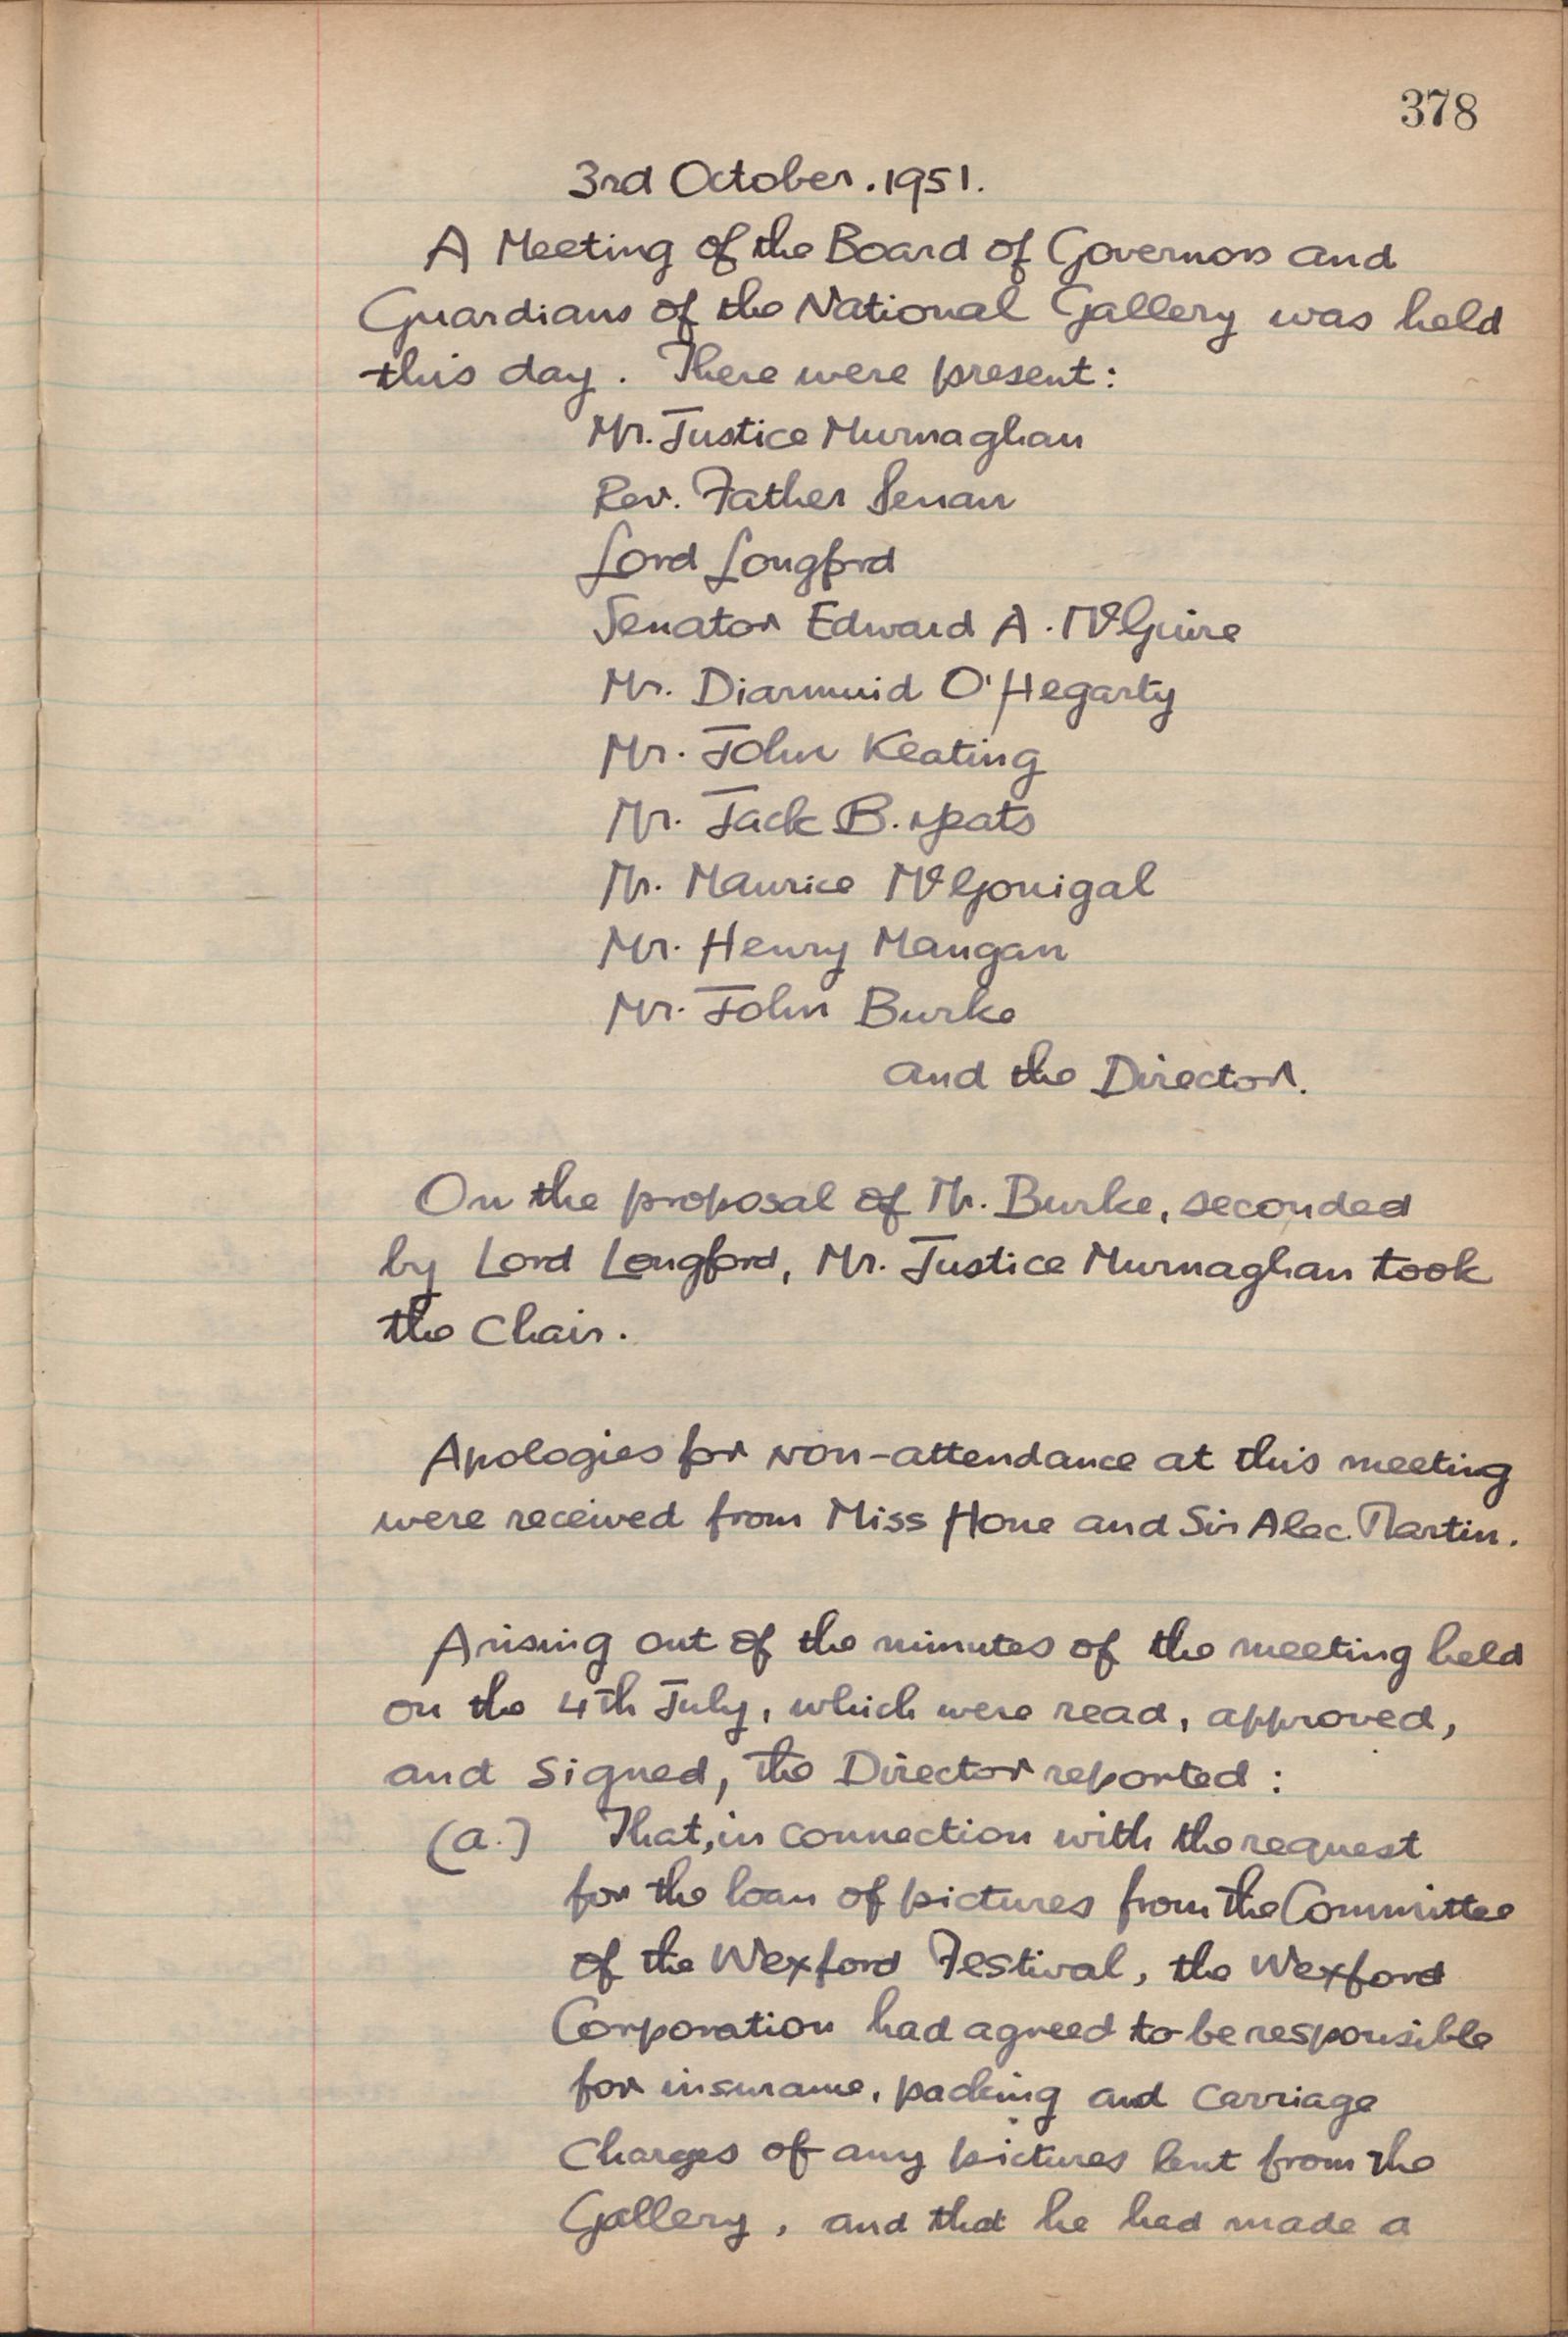 378
3rd October. 1951.
A Meeting of the Board of Governors and
Guardians of the National Gallery was held
this day. There were present:
Mr. Justice Murnaghan
Rev. Father Senan
Lord Longford
Senator Edward A. McGuire
Mr. Diarmuid O'Hegarty
Mr. John Keating
Mr. Jack B. Yeats
Mr. Maurice McGonigal
Mr. Henry Mangan
Mr. John Burke
and the Director.
On the proposal of Mr. Burke, seconded
by Lord Longford, Mr. Justice Murnaghan took
the Chair.
Apologies for non-attendance at this meeting
were received from Miss Hone and Sir Alec Martin.
Arising out of the minutes of the meeting held
on the 4th July, which were read, approved,
and signed, the Director reported:
(a.) That, in connection with the request
for the loan of pictures from the Committee
of the Wexford Festival, the Wexford
Corporation had agreed to be responsible
for insurance, packing and carriage
charges of any pictures lent from the
Gallery, and that he had made a